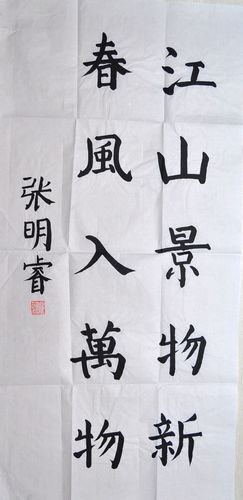 江山景物新
春風入萬物
张明睿